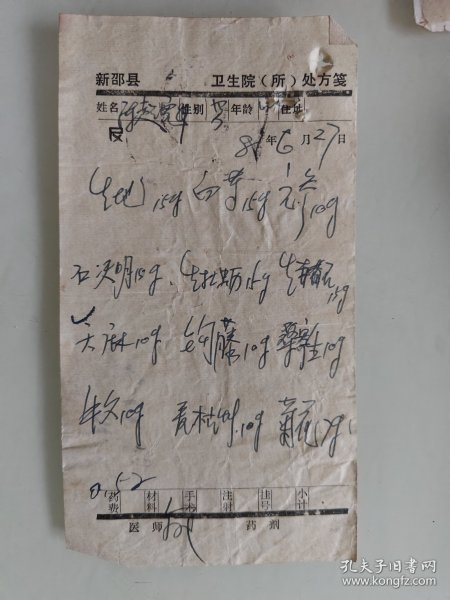 新邵县 卫生院（所）处方笺
姓名 性别 男 年龄 住址
86年6月27日
生地15g 白芍15g 元参10g
石决明15g、生牡蛎15g 生赭石15g
天麻10g 钩藤10g 桑寄生10g
牛夕10g 夏枯草10g 菊花7g
0.52
药费 材料 手术 注射 挂号 小计
医师 药剂
孔夫子旧书网
www.kongfz.com